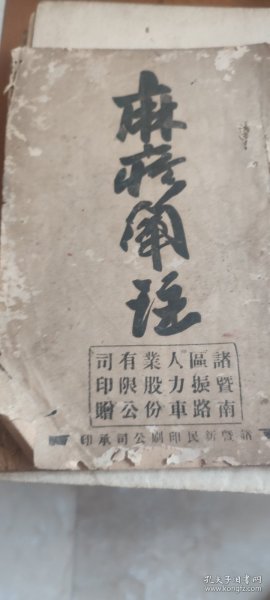 麻疹闡註
諸暨南
區振路
人力車
業股份
有限公
司印贈
諸暨新民印刷公司承印
孔夫子旧书网
www.kongfz.com